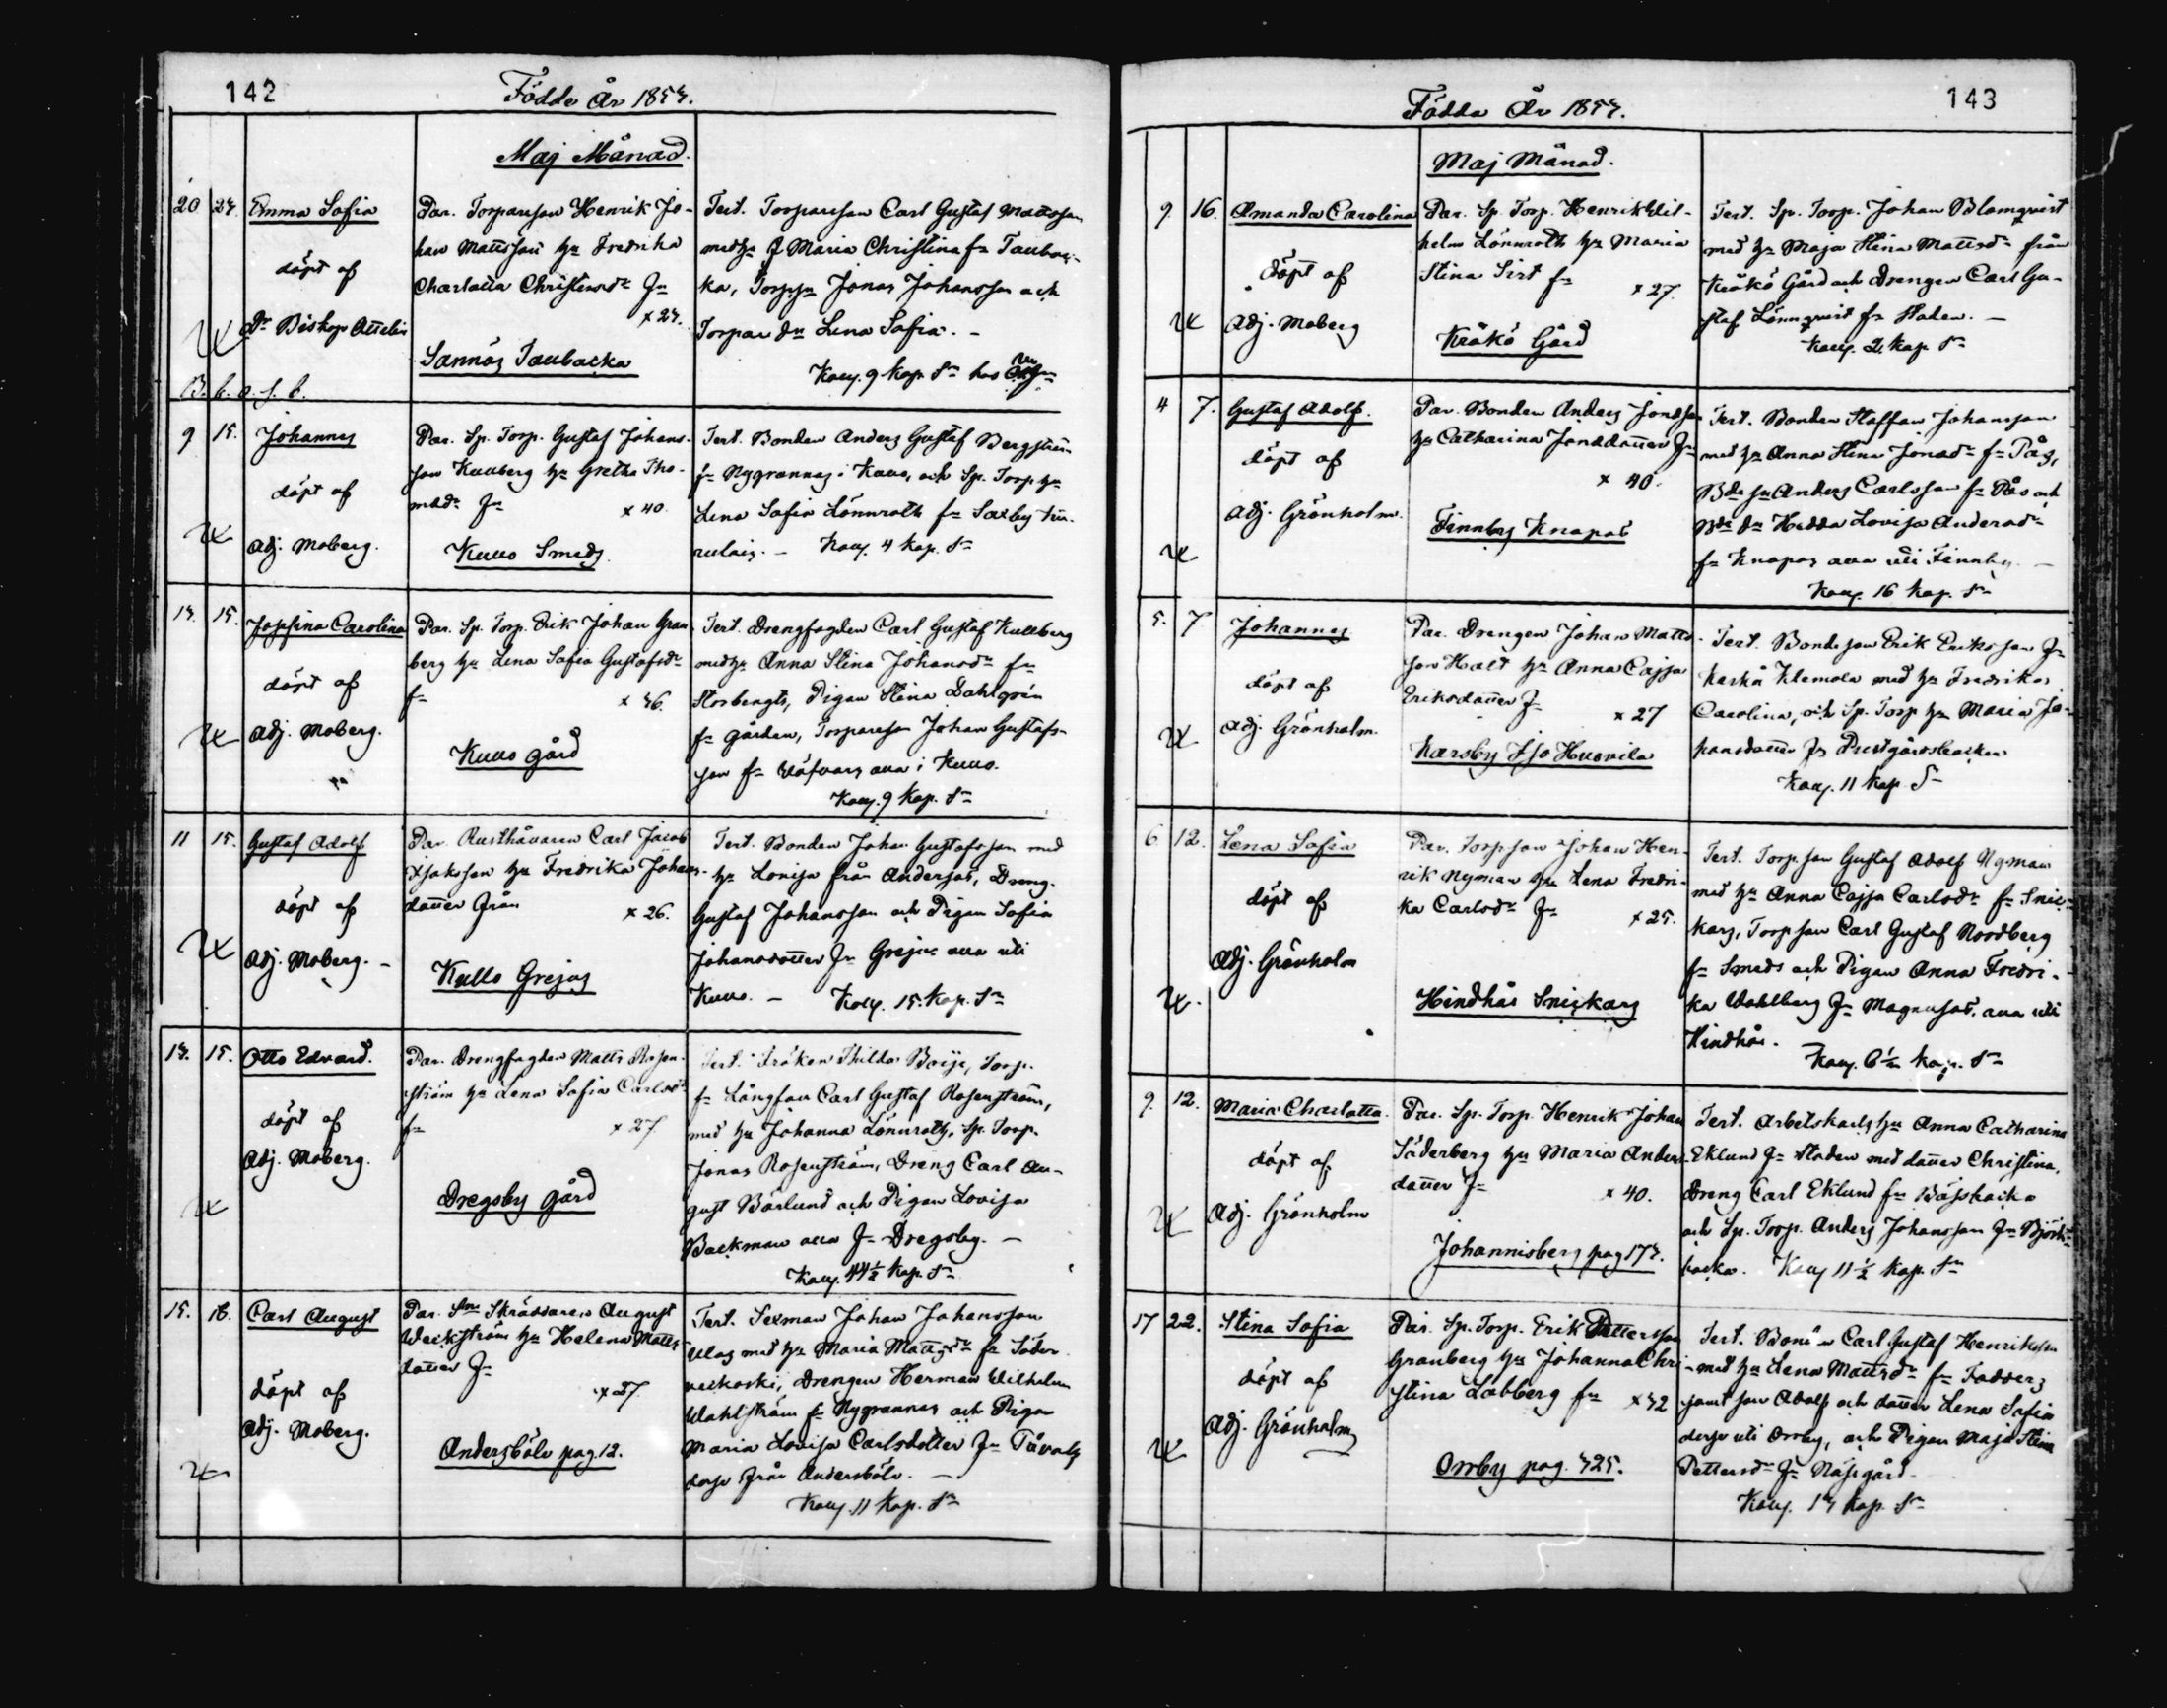 142
Födde År 1854.
Maj Månad.
20 24. Emma Sofia
döpt af
Dr Biskop Ottelin
B. b. o. s. b.
Par. Torparesson Henrik Jo-
han Mattsson hu Fredrika
Charlotta Christersdr fr
x 24.
Sannäs Taubacka
Test. Torparesson Carl Gustaf Mattsson
med hu Maria Christina fr Taubac-
ka, Torp. Jonas Johansson och
Torpar dr Lena Sofia. -
9 15. Johannes
döpt af
Adj. Moberg.
Par. Sp. Torp. Gustaf Johans-
son Kullberg hu Greta Tho-
masdr fr x 40.
Kullo Smeds
Test. Bonden Anders Gustaf Bergström
fr Nygrannas i Kullo, och Sp. Torp hu
Lena Sofia Lönnroth fr Saxby
Koll. 4 Kop. Sr
14. 15. Josefina Carolina
döpt af
Adj. Moberg.
Par. Sp. Torp. Erik Johan Gran-
berg hu Lena Sofia Gustafsdr
fr x 36.
Kullo gård
Test. Drengfogden Carl Gustaf Kullberg
med hu Anna Stina Johansdr fr
Storbengts, Pigan Stina Dahlgrén
fr gården, Torparesson Johan Gustafs-
son fr Wäfvars alla i Kullo.
Koll. 9 Kop. Sr
11 15. Gustaf Adolf
döpt af
Adj. Moberg. -
Par. Rusthållaren Carl Jacob
Isaksson hu Fredrika Johans-
dotter från x 26.
Kullo Grejas
Test. Bonden Johan Gustafsson med
hu Lovisa från Andersas, Dreng.
Gustaf Johansson och Pigan Sofia
Johansdotter fr Grejas alla uti
Kullo. - Koll. 15. Kop. Sr
14. 15. Otto Edvard.
döpt af
Adj. Moberg.
Par. Drengfogden Matts Rosen-
ström hu Lena Sofia Carlsdr
fr x 27
Dregsby gård
Test. Fröken Thilda Boije, Torp.
fr Långfall Carl Gustaf Rosenström,
med hu Johanna Lönnroth, Sp. Torp.
Jonas Rosenström, Dreng Carl Au-
gust Bärlund och Pigan Lovisa
Backman alla fr Dregsby. -
Koll. 44½ Kop. Sr
15. 16. Carl August
döpt af
Adj. Moberg.
Par. Skräddaren August
Weckström hu Helena Matts-
dotter fr
x 27
Andersböle pag. 12.
Test. Sexman Johan Johansson
Ulas med hu Maria Mattsdr fr Söder
veckoski, Drengen Herman Wilhelm
Wahlström fr Nygrannas och Pigan
Maria Lovisa Carlsdotter fr Tåvalts
dess från Andersböle. -
Koll. 11 Kop. Sr
143
Födda År 1854.
Maj Månad.
9. 16. Amanda Carolina
döpt af
Adj. Moberg
Par. Sp. Torp. Henrik Wil-
helm Lönnroth hu Maria
Stina Sirt fr x 27.
Kråkö Gård
Test. Sp. Torp. Johan Blomqvist
med hu Maja Stina Mattsdr från
Kråkö Gård och Drengen Carl Gu-
staf Lönnqvist fr Staden. -
Koll. 2. Kop. Sr
4 7. Gustaf Adolf.
döpt af
Adj. Grönholm.
Par. Bonden Anders Jonasson
hu Catharina Jonasdotter fr
x 40.
Finnby Knapas
Test. Bonden Staffan Johansson
med hu Anna Stina Jonasdr fr Pås,
Bde sn Anders Carlsson fr Pås och
Bde dr Hedda Lovisa Andersdr
fr Knapas alla uti Finnby. -
Koll. 16 Kop. Sr
5. 7 Johannes
döpt af
Adj. Grönholm.
Par. Drengen Johan Matts-
son Halt hu Anna Cajsa
Eriksdotter fr x 27
Karsby Iso Huovila
Test. Bondeson Erik Eriksson fr
Karskå Klemola med hu Fredrika
Carolina, och Sp. Torp hu Maria Jo-
hansdotter fr Prestgårdsbacken
Koll. 11 Kop. Sr
6 12. Lena Sofia
döpt af
Adj. Grönholm
Par. Torpson Johan Hen-
rik Nyman hu Lena Fredri-
ka Carlsdr fr x 25.
Hindhår Snickars
Test. Torpson Gustaf Adolf Nyman
med hu Anna Cajsa Carlsdr fr Snic-
kars, Torpson Carl Gustaf Nordberg
fr Smeds och Pigan Anna Fredri-
ka Wahlberg fr Magnusas, alla uti
Hindhår.
Koll. 6½ Kop. Sr
9. 12. Maria Charlotta.
döpt af
Adj. Grönholm
Par. Sp. Torp. Henrik Johan
Söderberg hu Maria Anders-
dotter fr x 40.
Johannisberg pag 174.
Test. Arbetskarls hu Anna Catharina
Eklund fr Staden med dotter Christina,
Dreng Carl Eklund fr
och Sp. Torp. Anders Johansson fr Björk-
backa. Koll 11½ Kop. Sr
17 22. Stina Sofia
döpt af
Adj. Grönholm
Par. Sp. Torp. Erik Pettersson
Granberg hu Johanna Chri-
stina Labberg fr x 42
Orrby pag. 425.
Test. Bonden Carl Gustaf Henriksson
med hu Lena Mattsdr fr Fadders
samt son Adolf och dotter Lena Sofia
derss uti Orrby, och Pigan Maja Stina
Pettersdr fr Näsegård.
Koll. 14 Kop. Sr